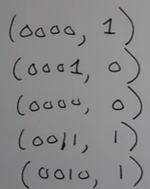 (0000, 1)
(0001, 0)
(0000, 0)
(0011, 1)
(0010, 1)